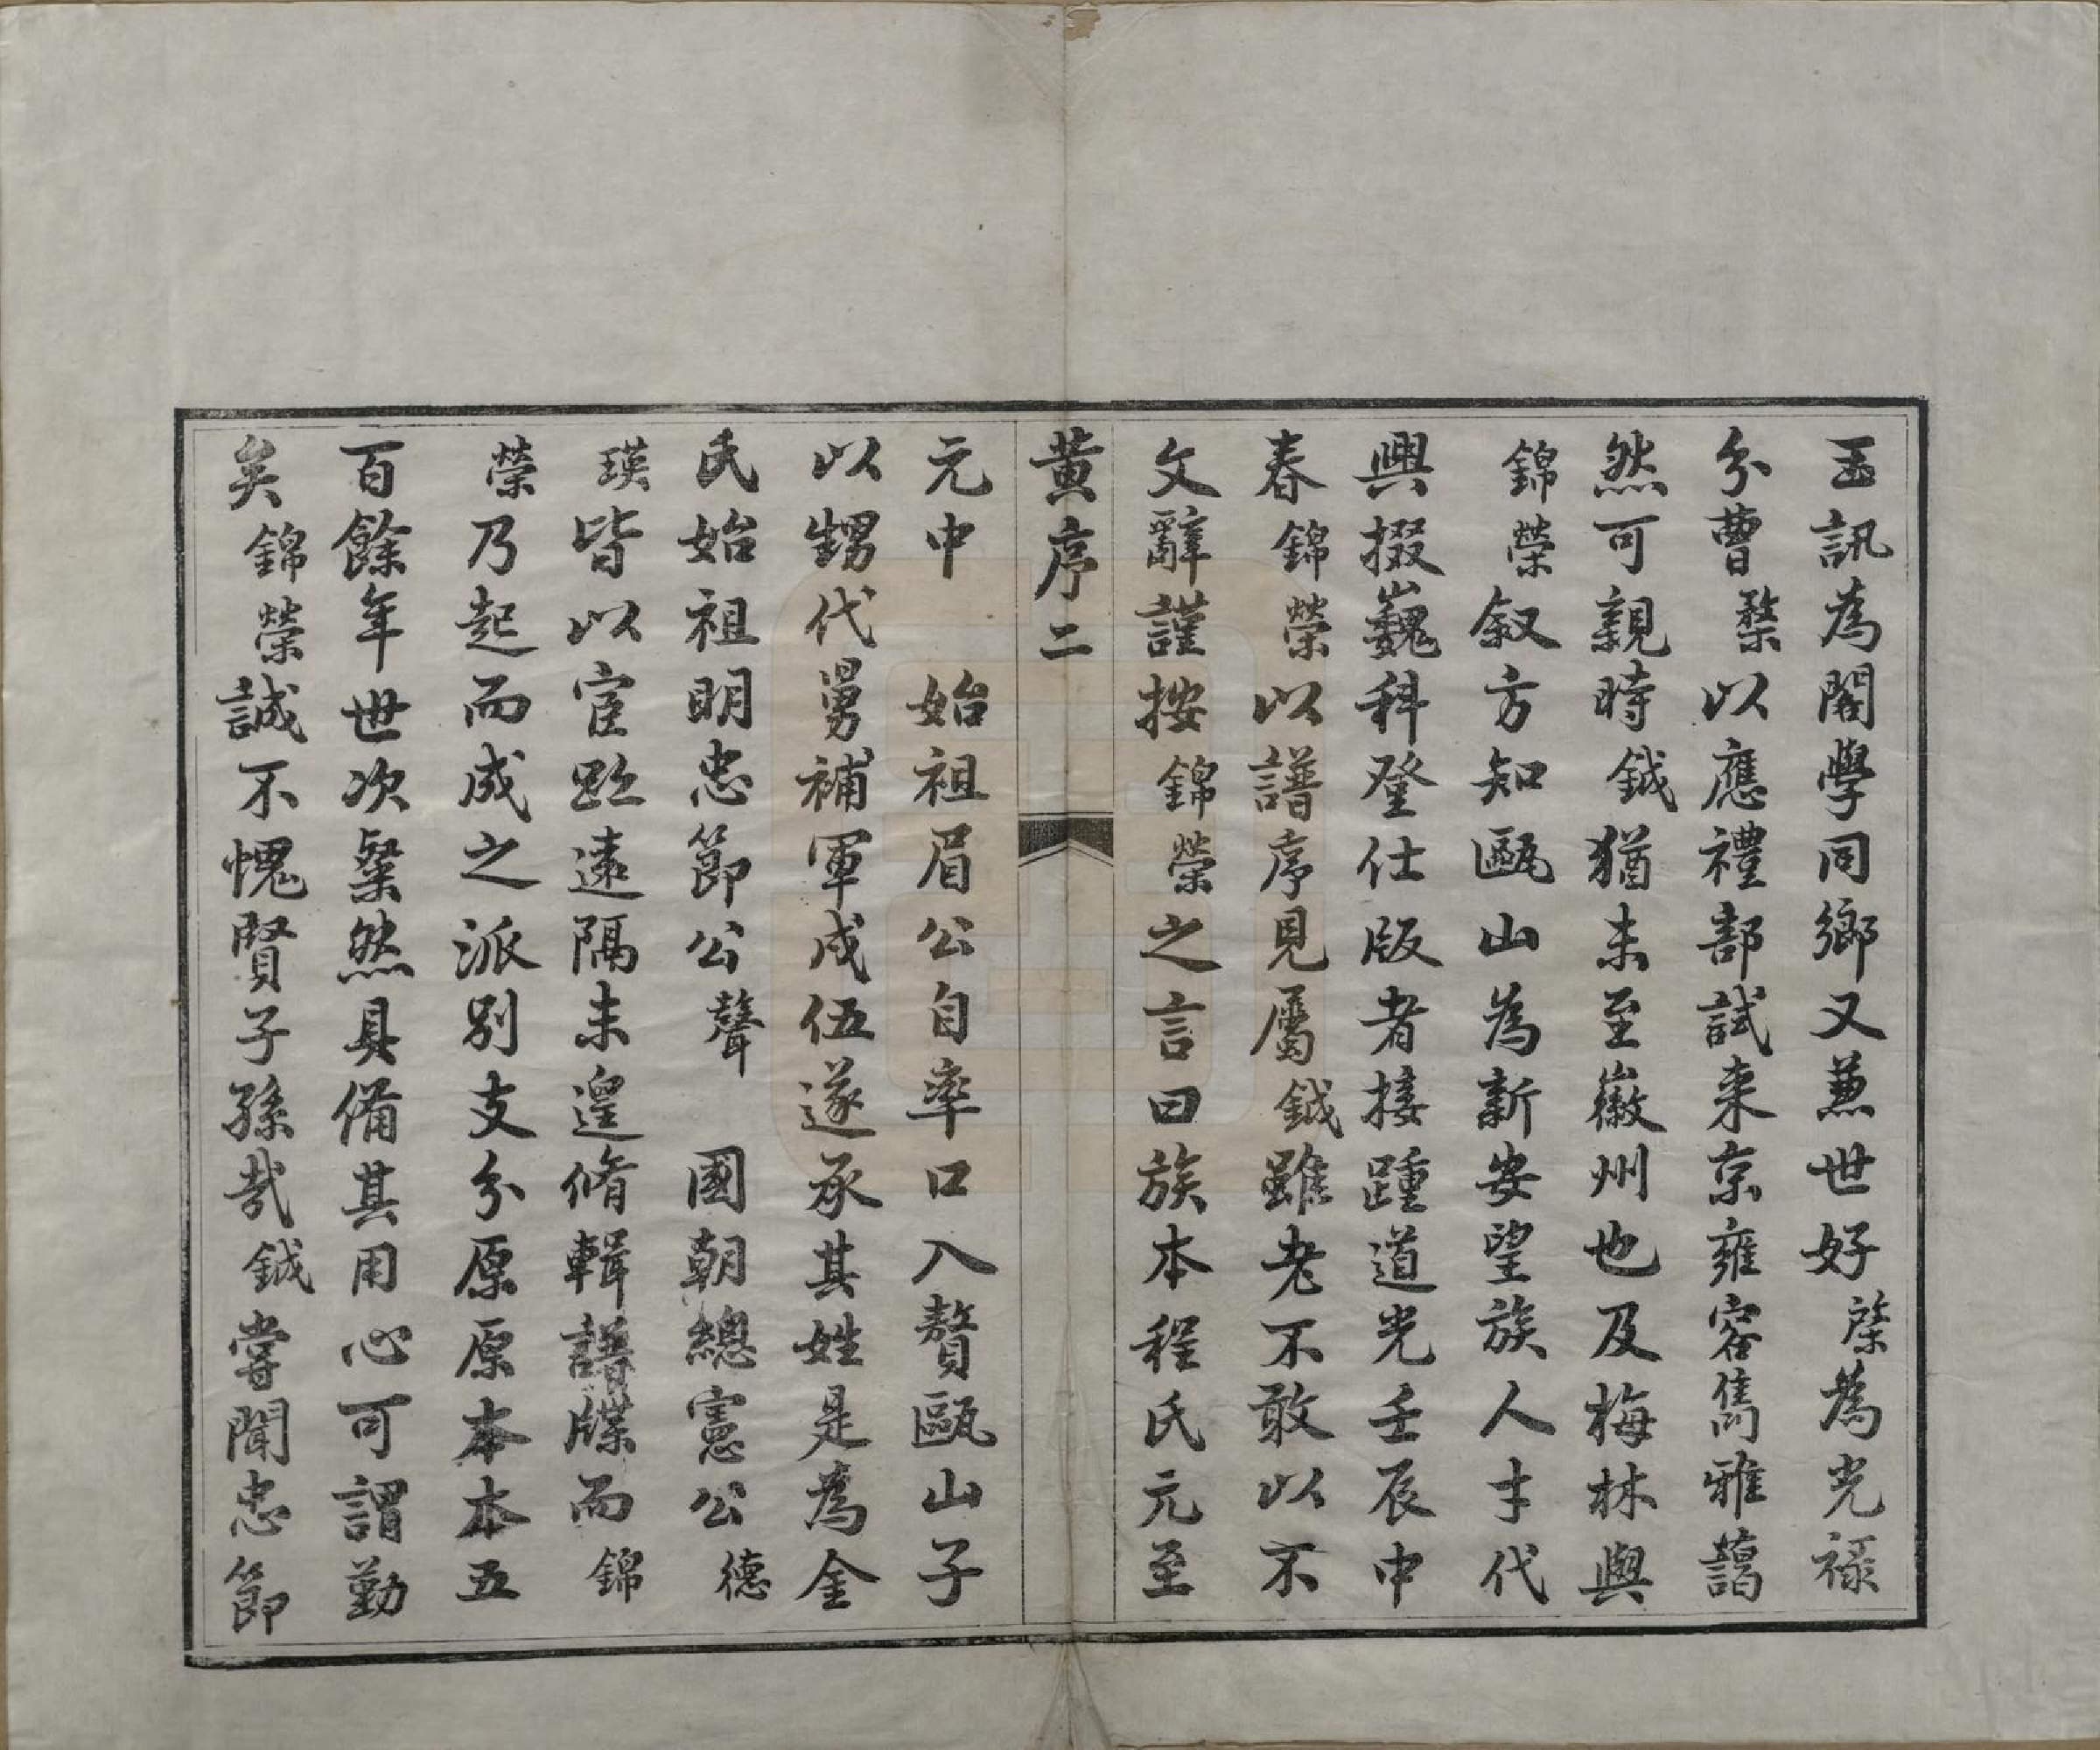 玉訊為閣學同鄉又兼世好棨為光祿
分曹棨以應禮部試来京雍容雋雅藹
然可親時鉞猶未至徽州也及梅林與
錦榮叙方知甌山為新安望族人才代
興掇巍科登仕版者接踵道光壬辰中
春錦榮以譜序見屬鉞雖老不敢以不
文辭謹按錦榮之言曰族本程氏元至
黄序二
元中　始祖眉公自率口入贅甌山子
以甥代舅補軍戍伍遂承其姓是為金
氏始祖明忠節公聲　國朝總憲公德
瑛皆以宦跡遠隔未遑脩輯譜牒而錦
榮乃起而成之派别支分原原本本五
百餘年世次粲然具備其用心可謂勤
矣錦榮誠不愧賢子孫哉鉞嘗聞忠節